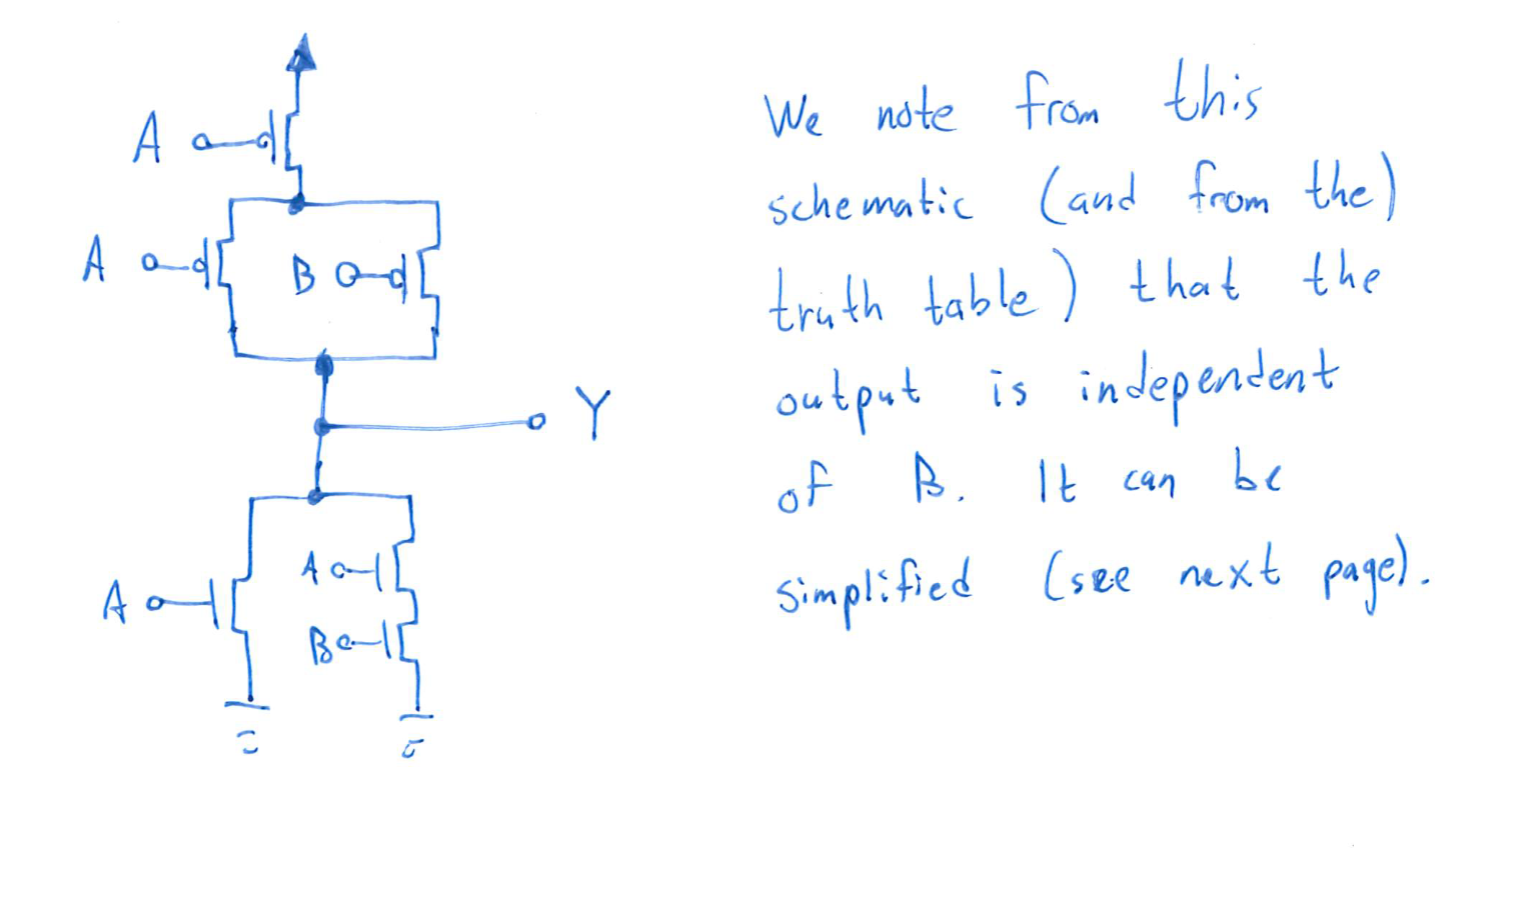 A
A
B
Y
A
A
B
We note from this
schematic (and from the)
truth table) that the
output is independent
of B. It can be
simplified (see next page).